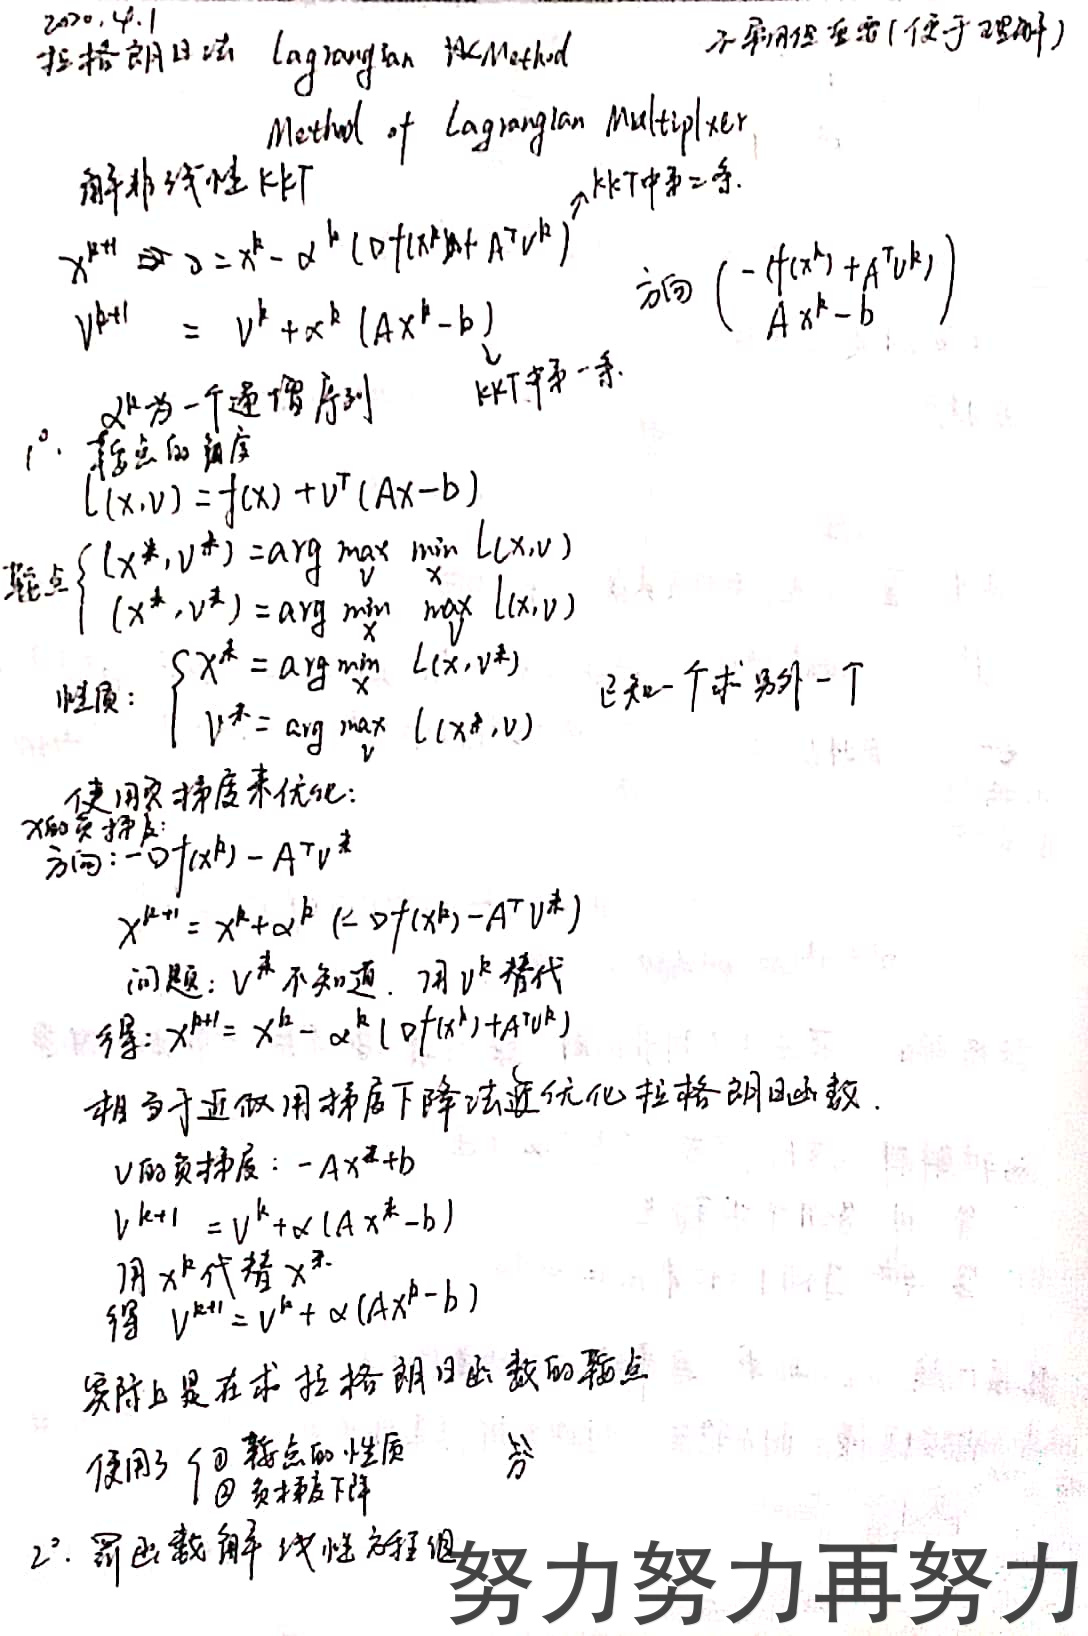 2020.4.1
拉格朗日法 Lagrangian Method 不实用但重要(便于理解)
Method of Lagrangian Multiplxer
解非线性KKT
x^{k+1} = x^k - α^k (∇f(x^k) + A^T v^k) ↗ KKT中第二条.
v^{k+1} = v^k + α^k (Ax^k - b) 方向 ( -(f(x^k) + A^T v^k) Ax^k - b )
↓ KKT中第一条.
α^k为一个递增序列
1°. 鞍点的角度
L(x,v) = f(x) + v^T (Ax-b)
鞍点 { (x*, v*) = arg max_v min_x L(x,v)
(x*, v*) = arg min_x max_v L(x,v)
性质: { x* = arg min_x L(x, v*)
v* = arg max_v L(x*, v) 已知一个求另外一个
使用负梯度来优化:
x的负梯度:
方向: -∇f(x^k) - A^T v*
x^{k+1} = x^k + α^k (-∇f(x^k) - A^T v*)
问题: v* 不知道. 用 v^k 替代
得: x^{k+1} = x^k - α^k (∇f(x^k) + A^T v^k)
相当于近似用梯度下降法优化拉格朗日函数.
v的负梯度: -Ax* + b
v^{k+1} = v^k + α(Ax* - b)
用 x^k 代替 x*.
得 v^{k+1} = v^k + α(Ax^k - b)
实际上是在求拉格朗日函数的鞍点
使用了 { ① 鞍点的性质
② 负梯度下降
2°. 罚函数解线性方程组
努力努力再努力